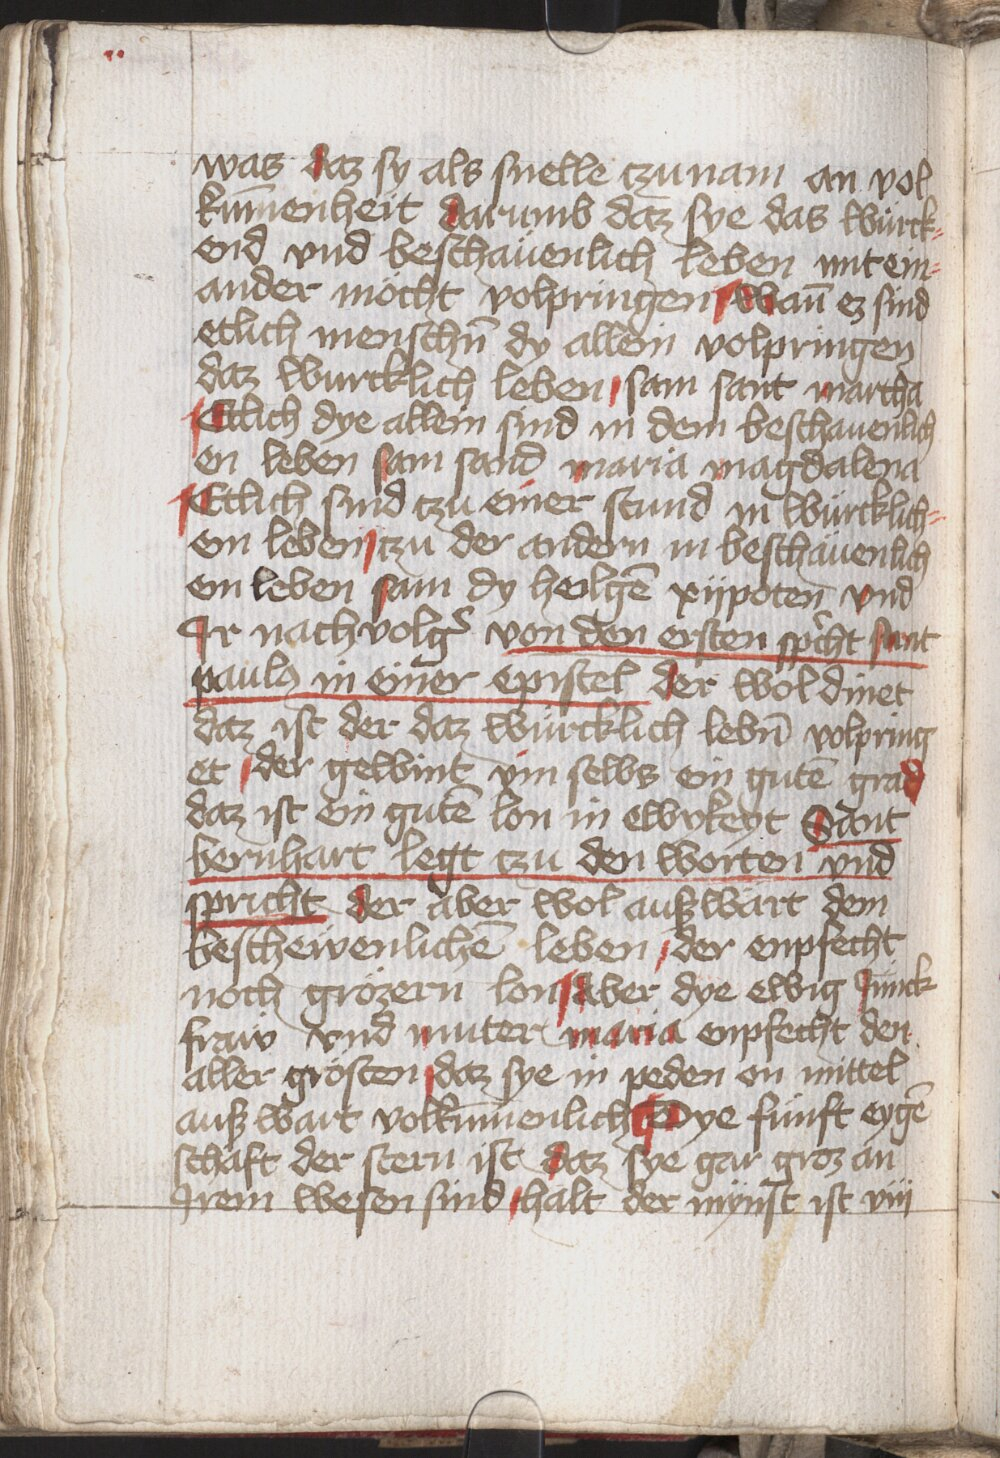 was daz sy als snelle czunam an vol
kūmenheit darumb daz sye das würck-
end vnd beschäuenlich leben mitein-
ander möcht volpringen wan̄ ez sind
etlich menschn̄ dy allein volpringen
daz wurcklich leben sam sant martha
Etlich dye allein sind in dem beschauenlich
en leben sam sand maria magdalena
Etlich sind czu einer stund in würcklich-
en leben czu der andern in beschäuenlich
en leben sam dy heilgē xijpoten vnd
Ir nachvolgr̄ von den ersten spͥcht sant
pauls in einer epistel der wol dinet
daz ist der daz würcklich lebn̄ volpring
et der gewint ym selbs ein gutē grad
daz ist ein gutē lon in ewykeyt Sant
bernhart legt czu den worten vnd
spricht der aber wol außwart dem
bescheẅenlichē leben der enpfecht
noch grözern lon Aber dye ewig Junck
fraw vnd muter maria enpfecht den
aller grösten daz sye in peden on mittel
auß wart volkūmenlich Dye fünft eygē
schaft der stern ist daz sye gar groz an
Irem wesen sind halt der mynst ist viii